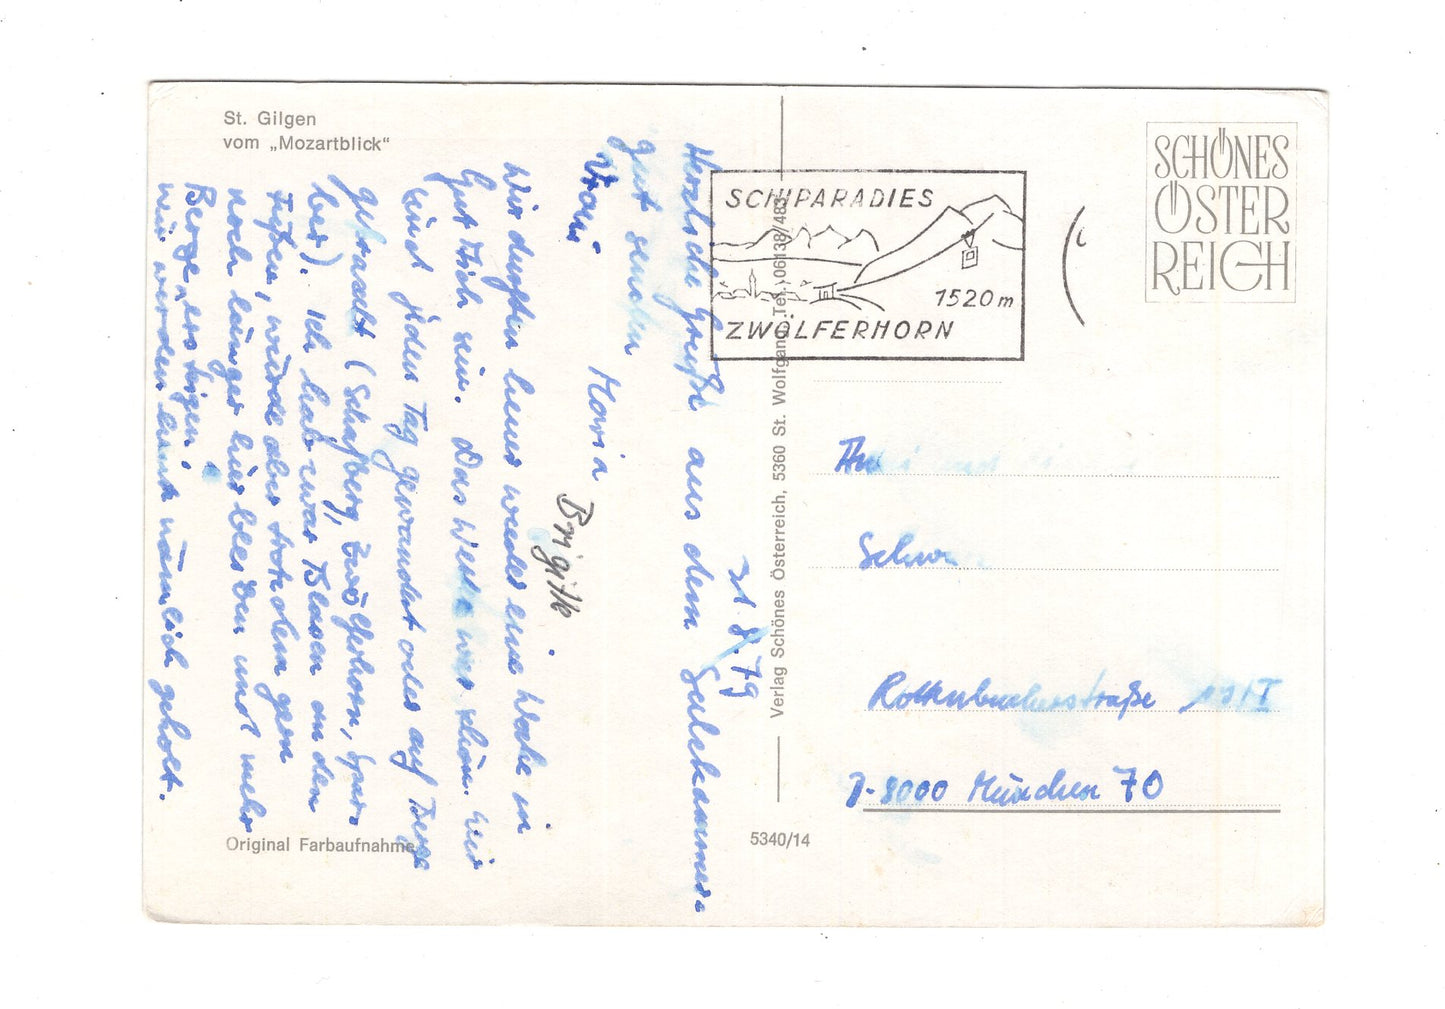 St. Gilgen
vom „Mozartblick“
31.8.79
Herzliche Grüße aus dem Salzkammer-
gut senden
Vroni Maria
Brigitte
Wir durften heuer wieder eine Woche in
Gut Aich sein. Das Wetter war schön. Wir
sind jeden Tag gewandert oder auf Berge
gekraxelt (Schafberg, Zwölferhorn, Spar-
ber). Ich hab zwar Blasen an den
Füßen, würde aber trotzdem gern
noch länger hier bleiben und mehr
Berge besteigen.
Wir werden nämlich geholt.
Original Farbaufnahme
Verlag Schönes Österreich, 5360 St. Wolfgang, Tel. 06138/483
5340/14
SCHIPARADIES
1520 m
ZWÖLFERHORN
SCHÖNES
ÖSTER
REICH
Rothenbucherstraße
D-8000 München 70